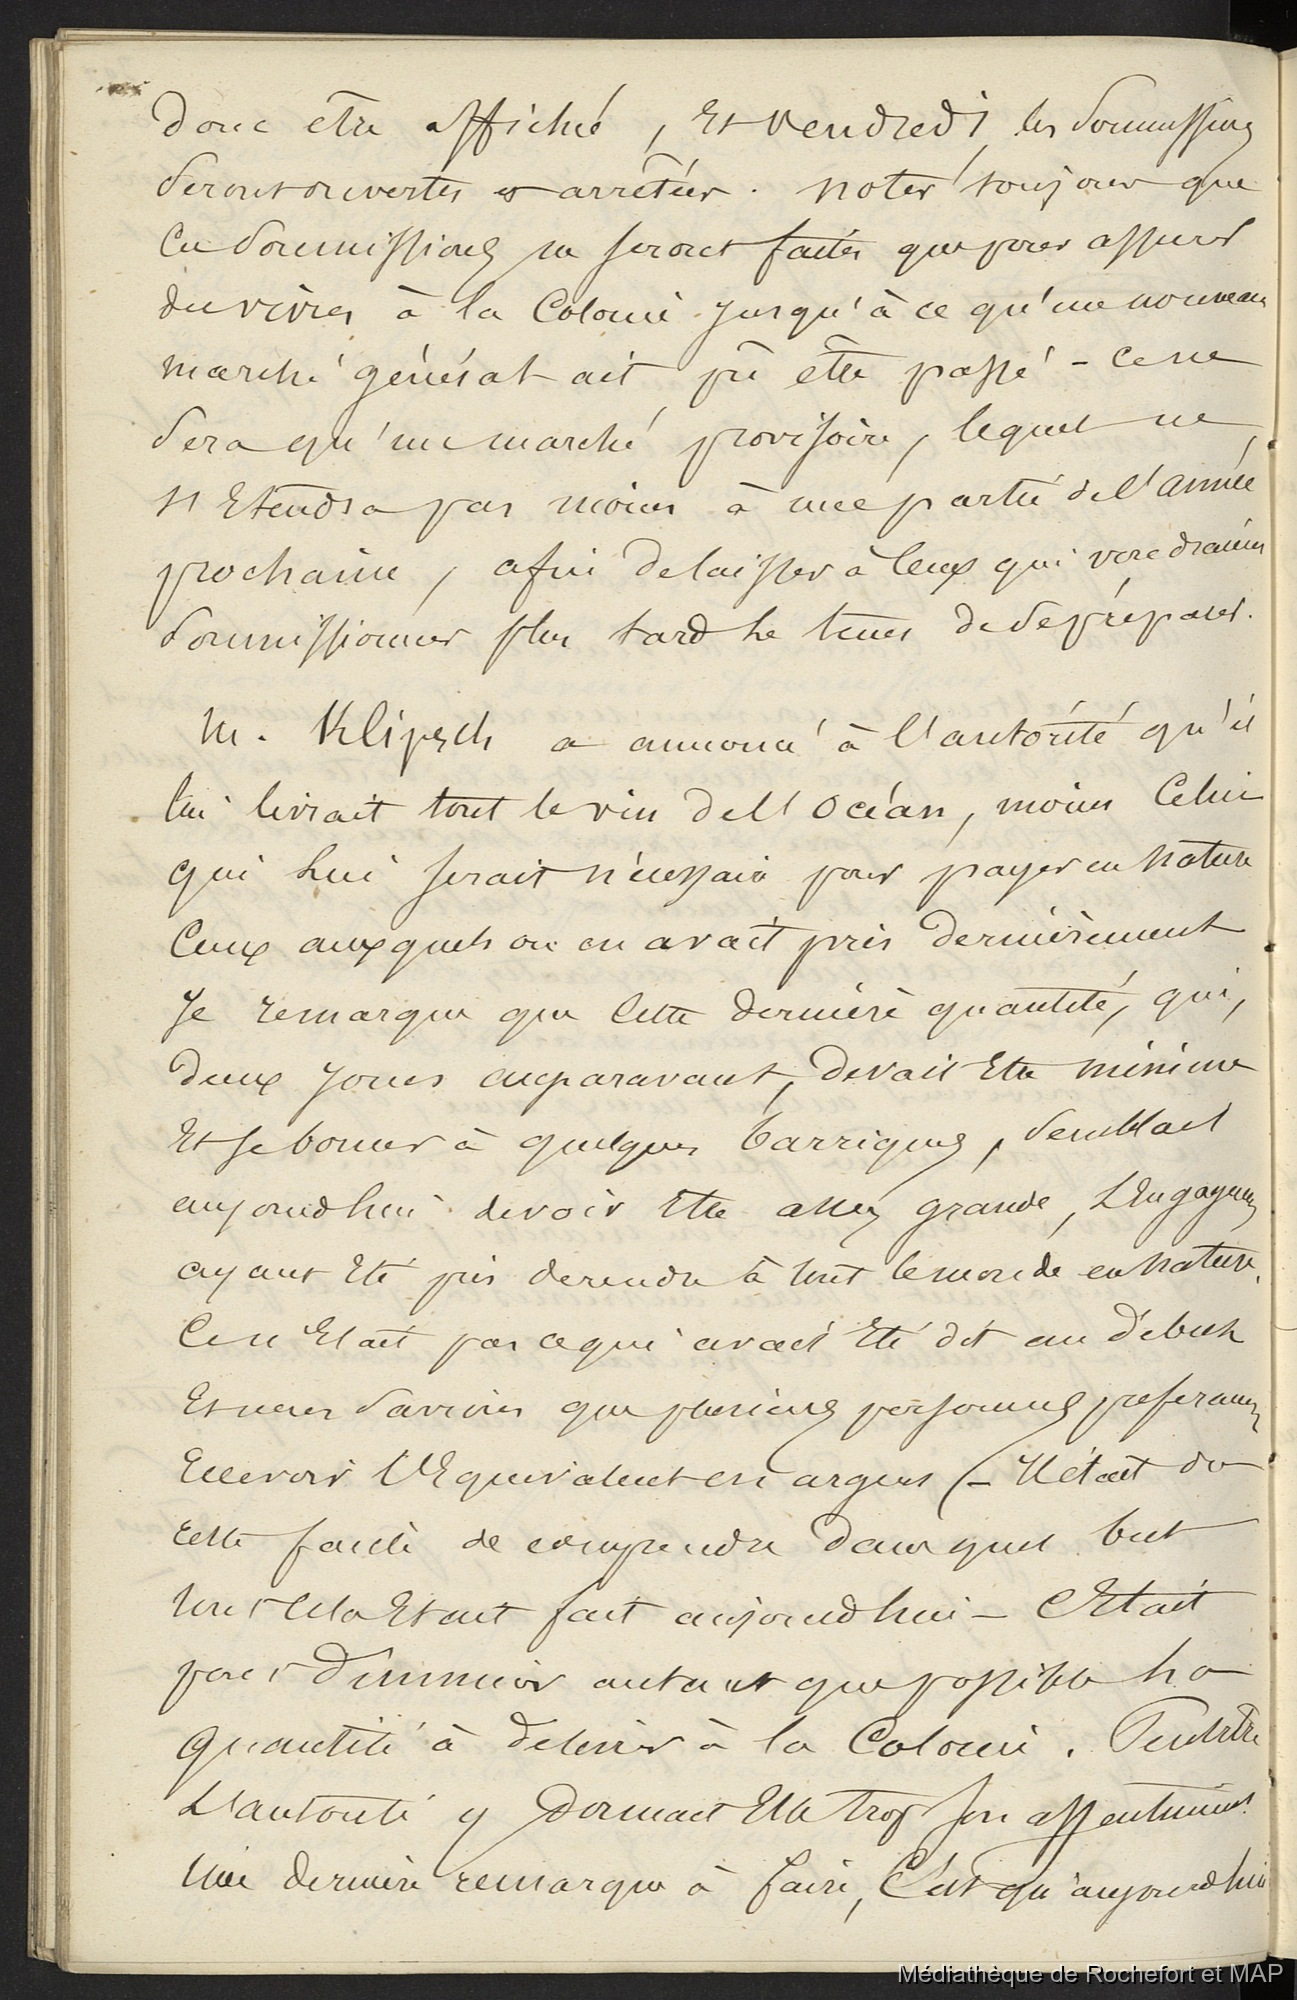 donc être affiché, Et vendredi les soumissions
seront ouvertes et arrêtées. Notez toujours que
ces soumissions ne seront faites que pour assurer
des vivres à la Colonie jusqu'à ce qu'un nouveau
marché général ait pû être passé - ce ne
sera qu'un marché provisoire, lequel ne
s'Etendra pas moins à une partie de l'année
prochaine, afin de laisser à ceux qui voudraient
soumissionner plus tard le tems de se préparer.
M. Klipsch a annoncé à l'autorité qu'il
lui livrait tout le vin de l'Océan, moins Celui
qui lui serait nécessaire pour payer en Nature
Ceux auxquels on en avait pris dernièrement
Je remarque que Cette dernière quantité, qui,
deux jours auparavant, devait Etre minime
Et se borner à quelques barriques, semblait
aujourdhui devoir Etre assez grande, L'Engagement
ayant Eté pris de rendre à tout le monde en Nature.
Ce n'Etait pas ce qui avait Eté dit au début
Et nous savions que plusieurs personnes préféraient
recevoir l'Equivalent en argent - Il était du
reste facile de comprendre dans quel but
tout Cela Etait fait aujourdhui - C'Etait
pour diminuer autant que possible la
quantité à délivrer à la Colonie. Peut être
L'autorité y donnait Elle trop son assentiment.
Une dernière remarque à faire, C'est qu'aujourdhui
Médiathèque de Rochefort et MAP